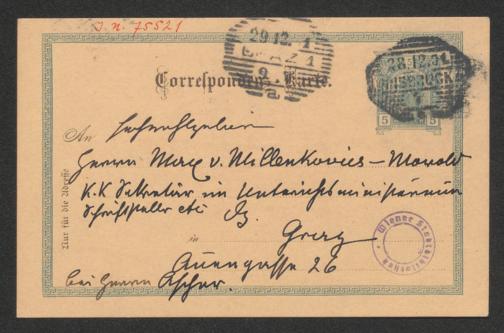 J. N. 75521
29.12.1
GRAZ 1
28.12.01
INNSBRUCK
1
Correspondenz-Karte.
5
An
Hochwohlgeboren
Herrn Max v. Millenkovics-Morold
K.K. Sekretär im Unterichtsministerium
Schriftsteller etc
in
Graz
Auengasse 26
bei Herrn Ascher.
Nur für die Adresse
Wiener Stadtbibliothek